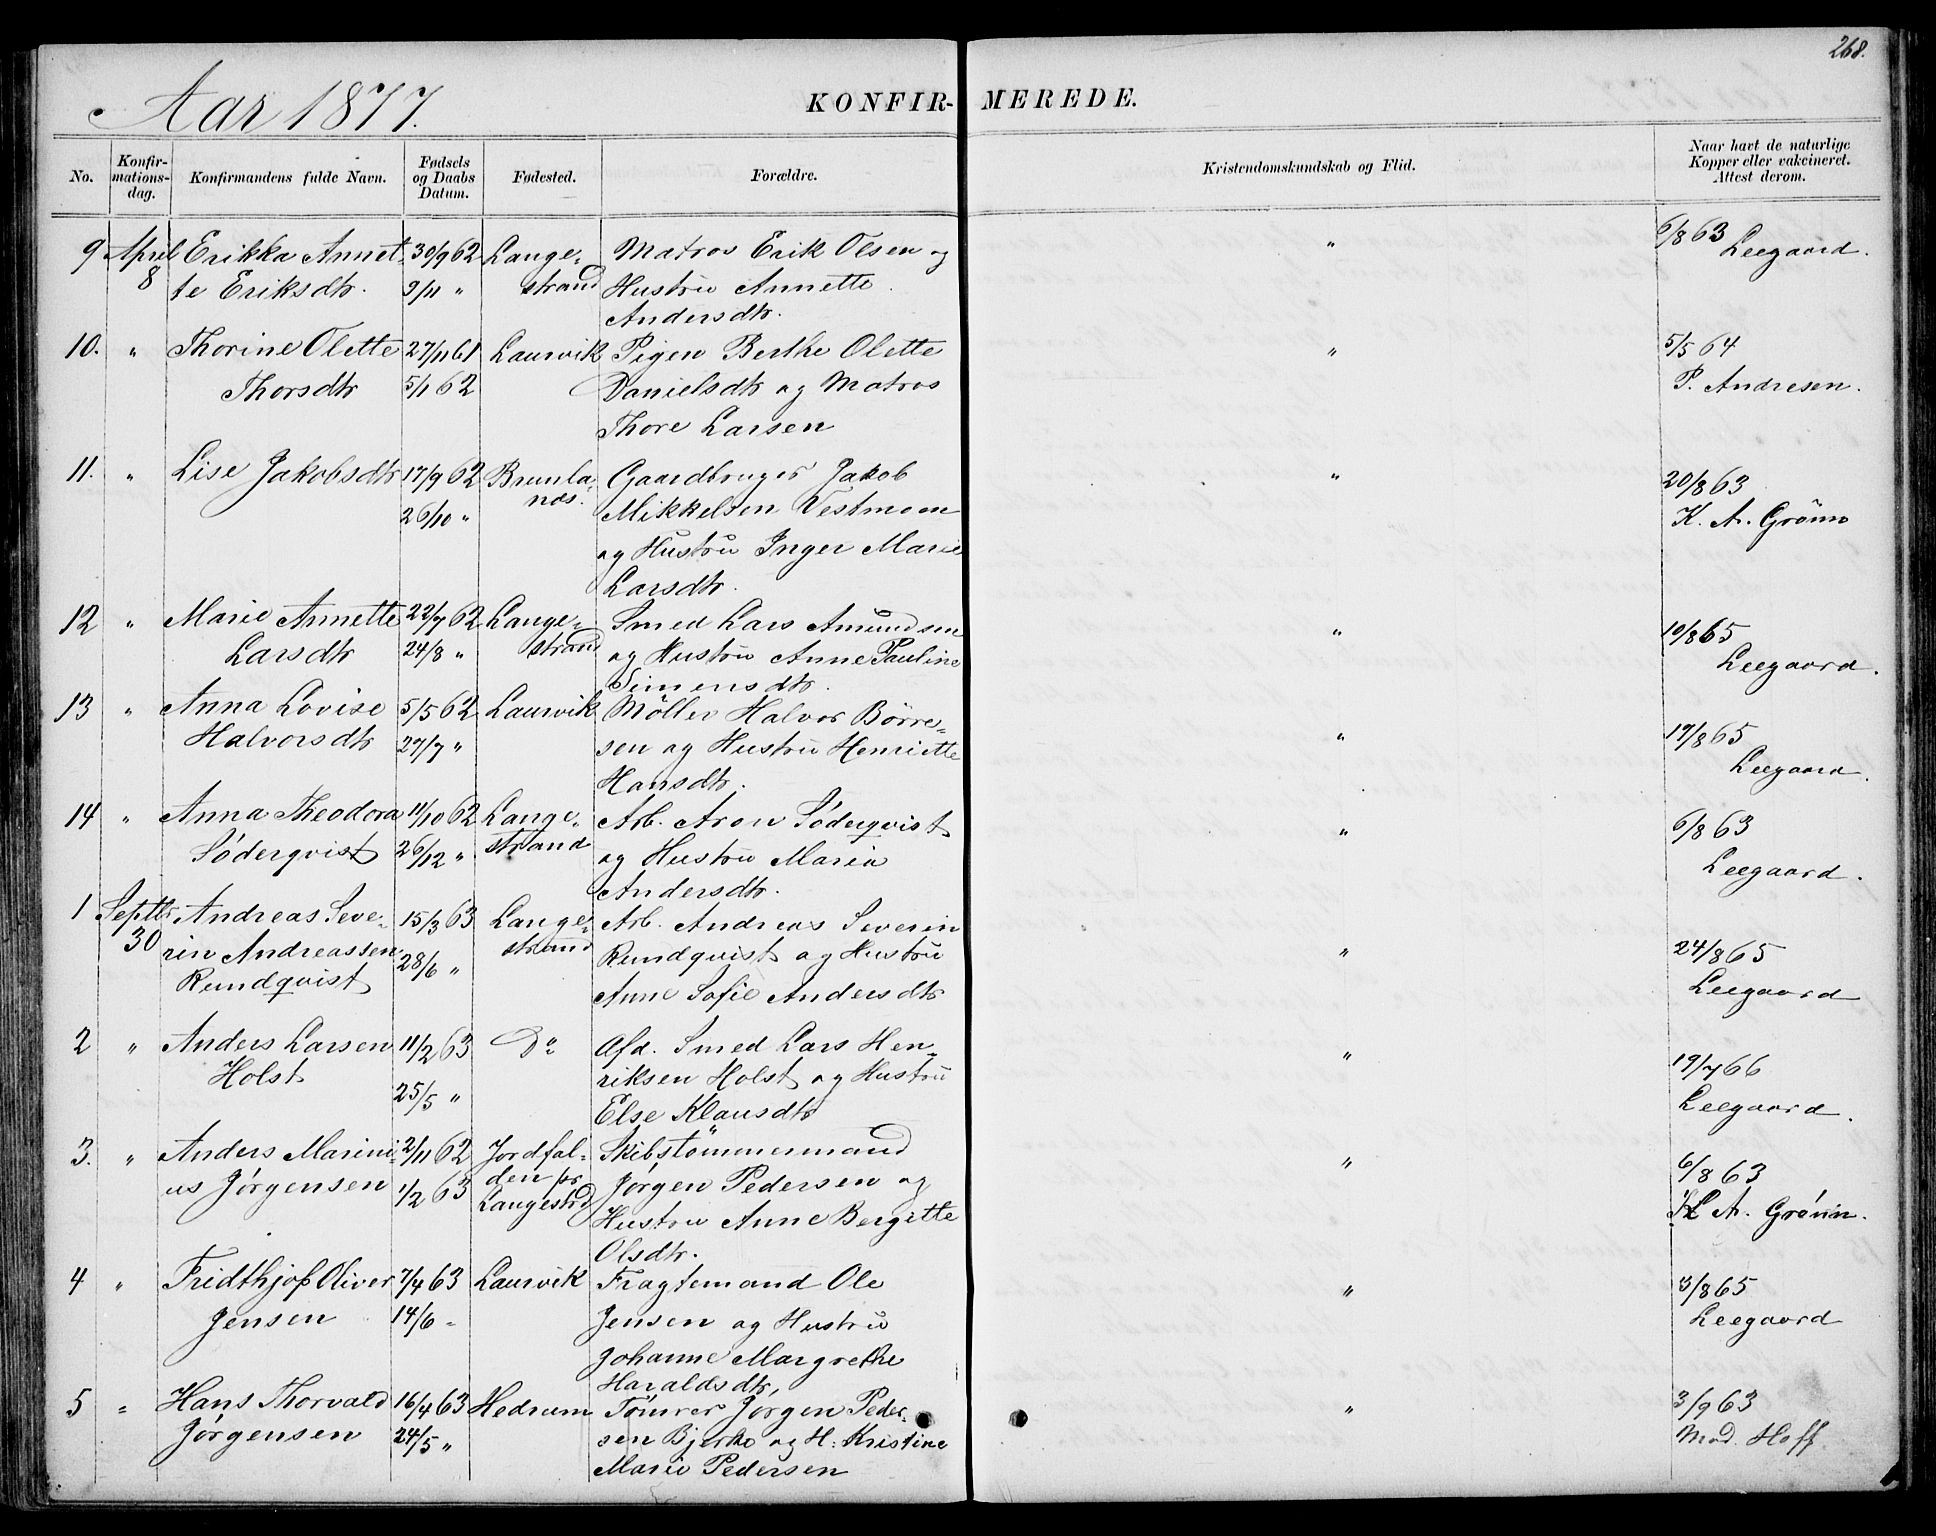 268.
Aar 1877.
KONFIR- MEREDE.
No.
Konfir-
mations-
dag.
Konfirmandens fulde Navn.
Fødsels
og Daabs
Datum.
Fødested.
Forældre.
Kristendomskundskab og Flid.
Naar havt de naturlige
Kopper eller vakcineret.
Attest derom.
9 April Erikka Annet- 30/9 62 Lange- Matros Erik Olsen og " 6/8 63
8 te Eriksdtr. 9/11 " strand Hustru Annette Leegaard.
Andersdtr.
10. " Thorine Olette 27/11 61 Laurvik Pigen Berthe Olette " 5/5 64
Thorsdtr 5/1 62 Danielsdtr og Matros P. Andresen.
Thore Larsen
11. " Lise Jakobsdtr 17/9 62 Brunla- Gaardbruger Jakob " 20/8 63
26/10 " næs. Mikkelsen Vestmoen K. A. Grönn
og Hustru Inger Marie
Larsdtr.
12 " Marie Annette 22/7 62 Lange- Smed Lars Amundsen " 10/8 65
Larsdtr 24/8 " strand og Hustru Anne Pauline Leegaard.
Simensdtr.
13 " Anna Lovise 5/5 62 Laurvik Möller Halvor Börre- " 19/8 65
Halvorsdtr 27/7 " sen og Hustru Henriette Leegaard.
Hansdtr.
14 " Anna Theodora 11/10 62 Lange- Arb. Aron Söderqvist " 6/8 63
Söderqvist 26/12 " strand og Hustru Maria Leegaard.
Andersdtr.
1 Septbr Andreas Seve- 15/3 63 Lange- Arb. Andreas Severin
30 rin Andreassen 28/6 " strand Rundqvist og Hustru " 24/8 65
Rundqvist Anne Sofie Andersdtr Leegaard
2 " Anders Larsen 11/2 63 Do Afd. Smed Lars Hen- " 19/7 66
Holst 25/5 " riksen Holst og Hustru Leegaard.
Else Klausdtr
3. " Anders Marini- 2/11 62 Jordfal- Skibstömmermand " 6/8 63
us Jörgensen 1/2 63 den pr Jörgen Pedersen og K A. Grönn.
Langestrd Hustru Anne Bergitte
Olsdtr.
4 " Fridthjof Oliver 7/4 63 Laurvik Fragtemand Ole " 3/8 65
Jensen 14/6 " Jensen og Hustru Leegaard
Johanne Margrethe
Haraldsdtr,
5 " Hans Thorvald 16/4 63 Hedrum Tömrer Jörgen Peder- " 3/9 63
Jörgensen 24/5 " sen Bjerke og H: Kristine Mad. Hoff.
Marie Pedersen